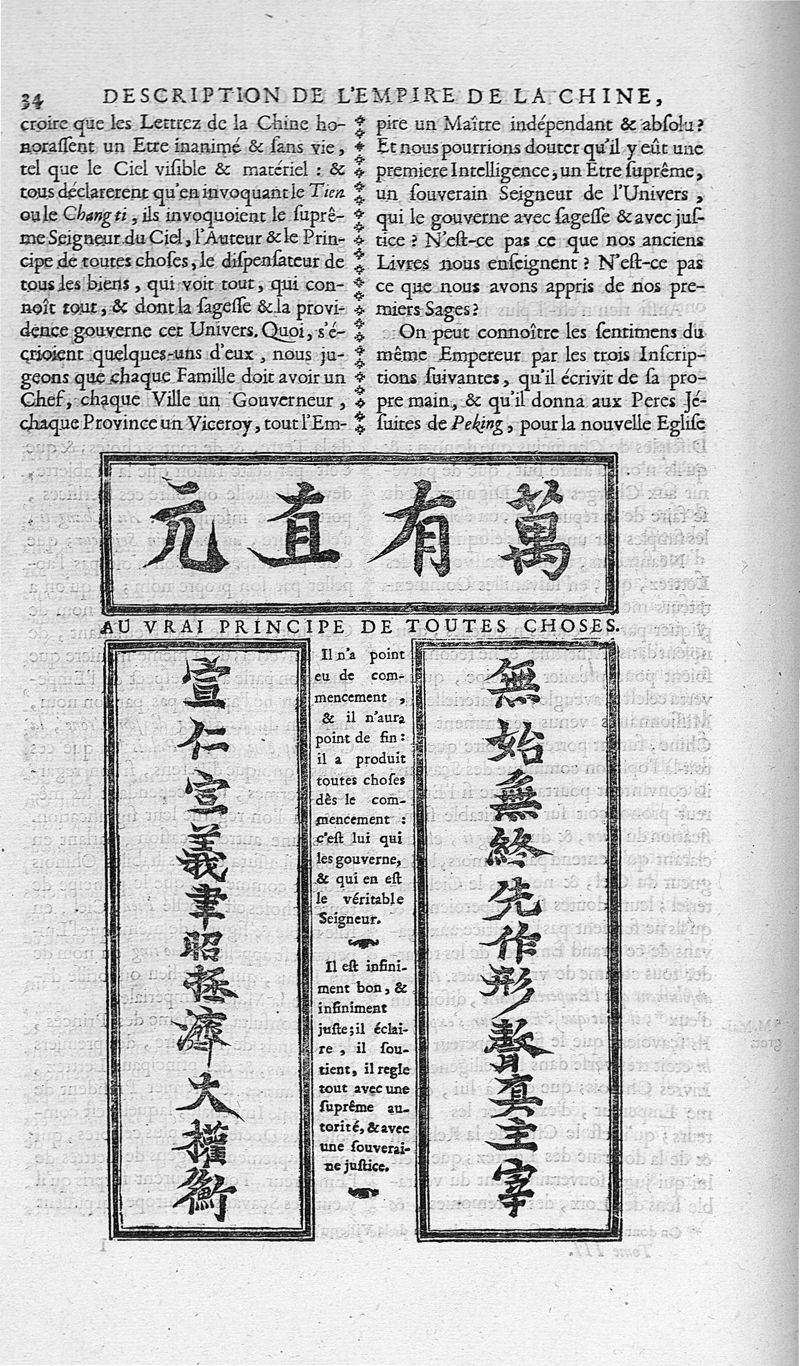 34 DESCRIPTION DE L'EMPIRE DE LA CHINE,
croire que les Lettrez de la Chine ho-
noraſſent un Etre inanimé & ſans vie,
tel que le Ciel viſible & matériel : &
tous déclarerent qu'en invoquant le Tien
ou le Chang ti, ils invoquoient le ſuprê-
me Seigneur du Ciel, l'Auteur & le Prin-
cipe de toutes choſes, le diſpenſateur de
tous les biens, qui voit tout, qui con-
noît tout, & dont la ſageſſe & la provi-
dence gouverne cet Univers. Quoi, s'é-
crioient quelques-uns d'eux, nous ju-
geons que chaque Famille doit avoir un
Chef, chaque Ville un Gouverneur,
chaque Province un Viceroy, tout l'Em-
pire un Maître indépendant & abſolu ?
Et nous pourrions douter qu'il y eût une
premiere Intelligence, un Être ſuprême,
un ſouverain Seigneur de l'Univers,
qui le gouverne avec ſageſſe & avec juſ-
tice ? N'eſt-ce pas ce que nos anciens
Livres nous enſeignent ? N'eſt-ce pas
ce que nous avons appris de nos pre-
miers Sages ?
On peut connoître les ſentimens du
même Empereur par les trois Inſcrip-
tions ſuivantes, qu'il écrivit de ſa pro-
pre main, & qu'il donna aux Peres Jé-
ſuites de Peking, pour la nouvelle Egliſe
萬有直元
AU VRAI PRINCIPE DE TOUTES CHOSES.
無始無終先作形聲真主宰
Il n'a point
eu de com-
mencement,
& il n'aura
point de fin :
il a produit
toutes choſes
dès le com-
mencement :
c'eſt lui qui
les gouverne,
& qui en eſt
le véritable
Seigneur.
Il eſt infini-
ment bon, &
infiniment
juſte; il éclai-
re, il ſou-
tient, il regle
tout avec une
ſuprême au-
torité, & avec
une ſouverai-
ne juſtice.
宣仁宣義聿昭拯濟大權衡